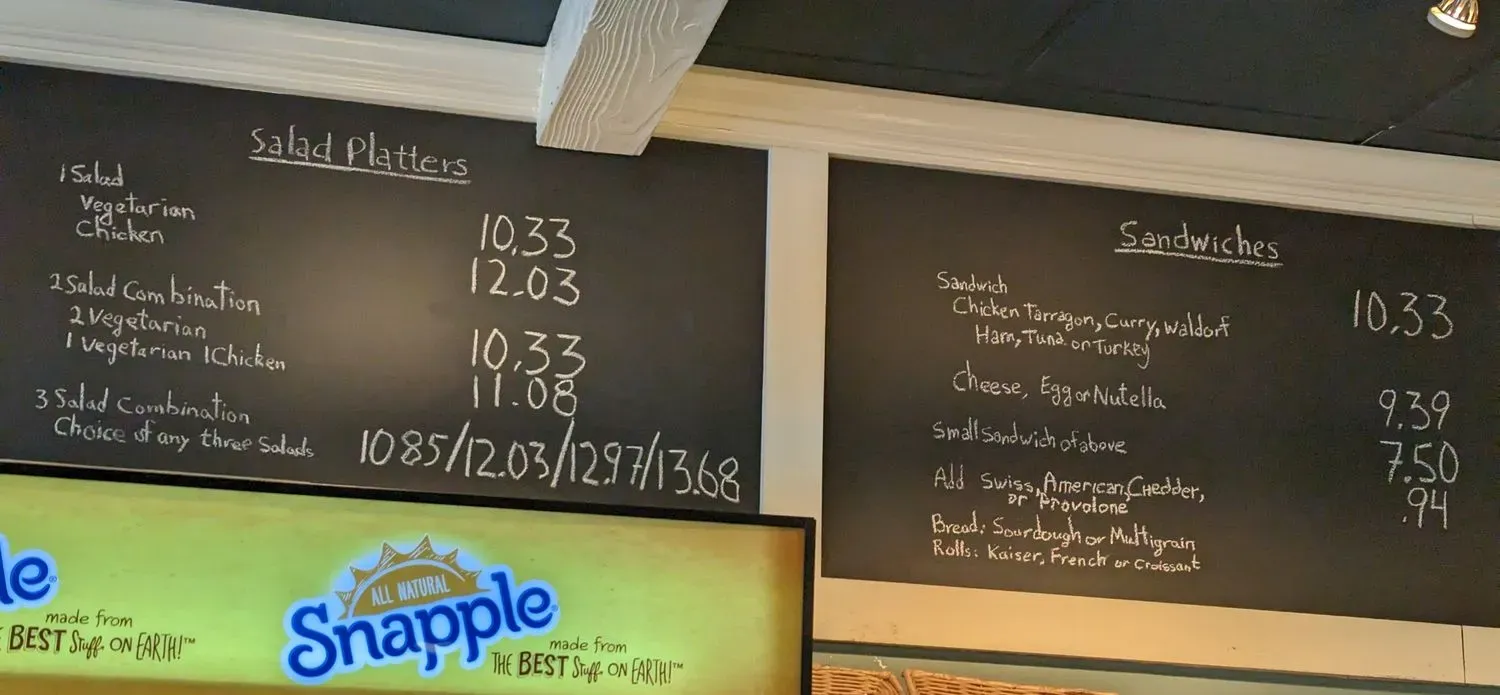 Salad Platters
1 Salad
Vegetarian 10.33
Chicken 12.03
2 Salad Combination
2 Vegetarian 10.33
1 Vegetarian 1 Chicken 11.08
3 Salad Combination
Choice of any three Salads 1085/12.03/12.97/13.68
Sandwiches
Sandwich 10.33
Chicken Tarragon, Curry, Waldorf
Ham, Tuna or Turkey
Cheese, Egg or Nutella 9.39
Small Sandwich of above 7.50
Add Swiss, American, Chedder, .94
or Provolone
Bread: Sourdough or Multigrain
Rolls: Kaiser, French or Croissant
le
made from
BEST Stuff ON EARTH!™
ALL NATURAL
Snapple®
made from
THE BEST Stuff ON EARTH!™